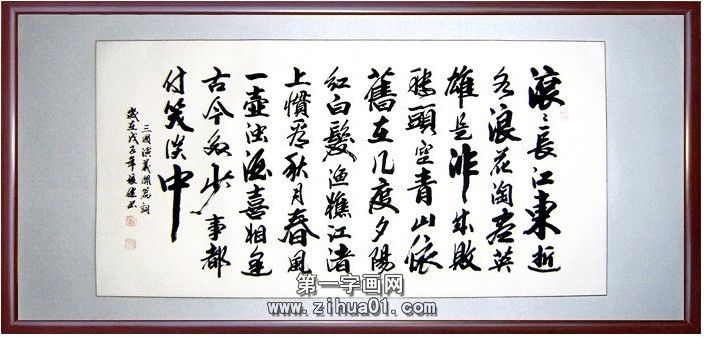 滚〻長江東逝
水浪花淘尽英
雄是非成敗
转頭空青山依
舊在几度夕陽
紅白髮渔樵江渚
上慣看秋月春風
一壶浊酒喜相逢
古今多少事都
付笑谈中
三國演義開篇詞
歲在戊子年
第一字画网
www.zihua01.com